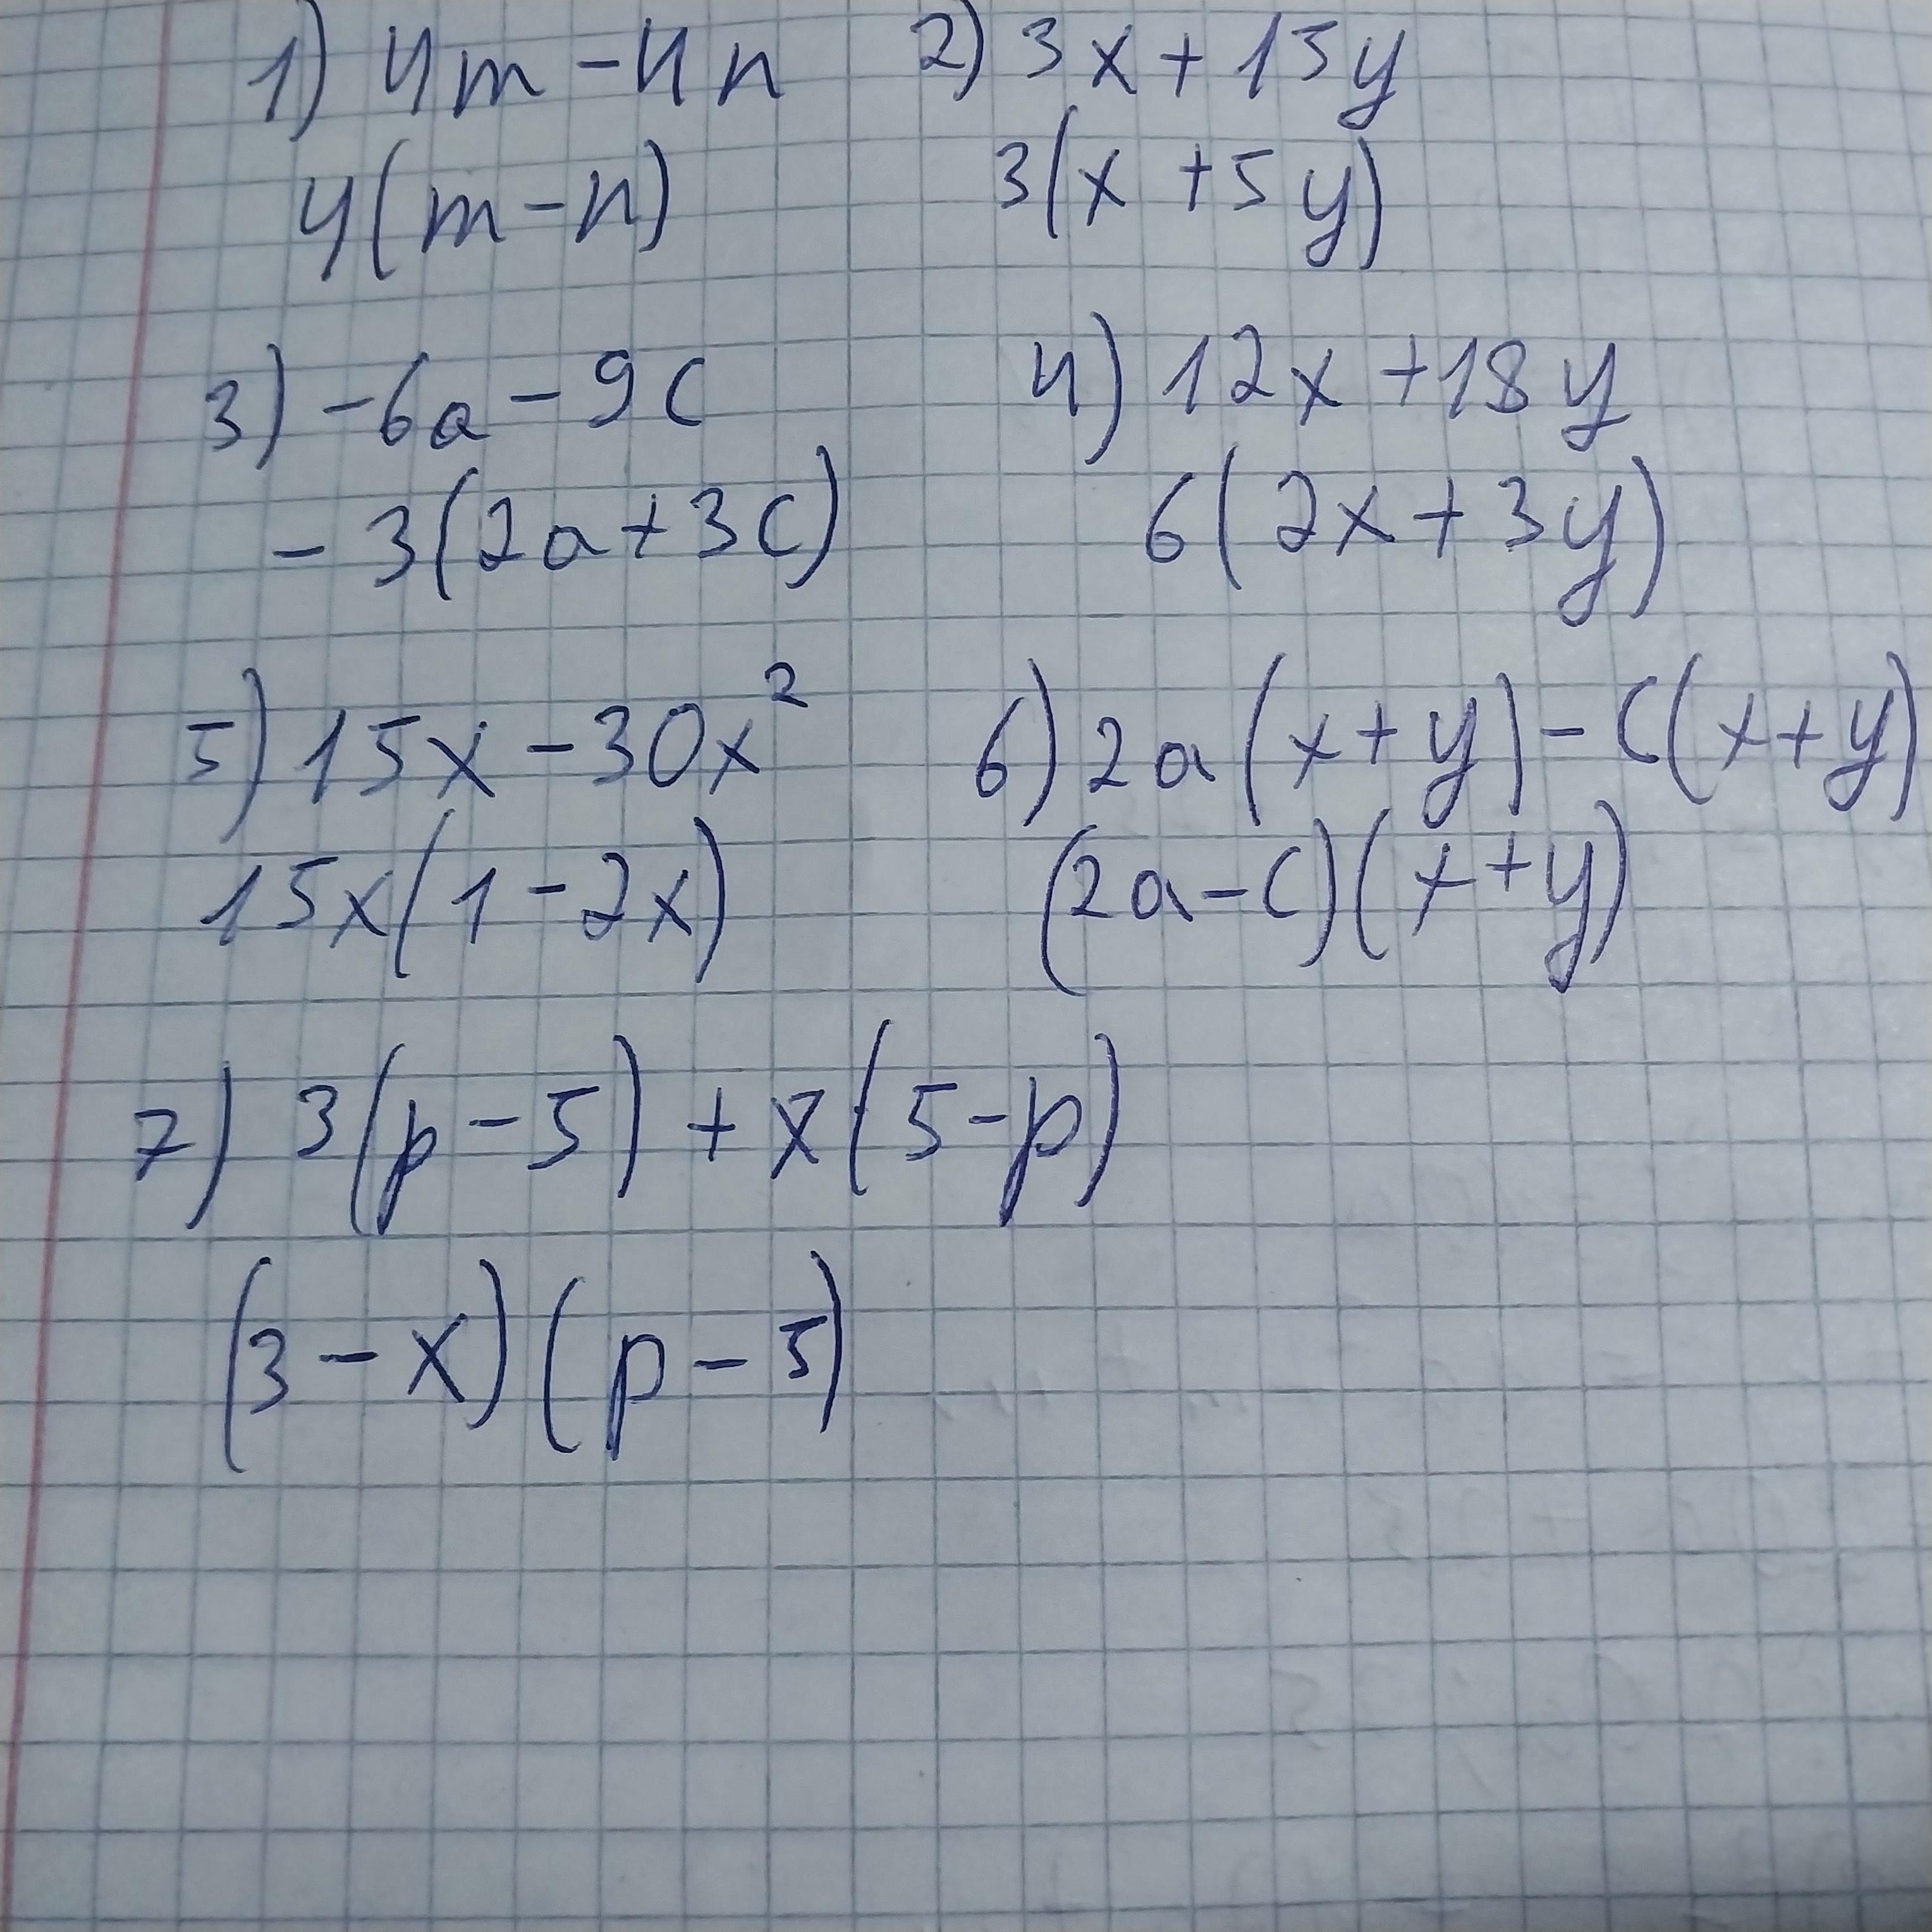 1) 4m - 4n 2) 3x + 15y
4(m - n) 3(x + 5y)
3) -6a - 9c 4) 12x + 18y
-3(2a + 3c) 6(2x + 3y)
5) 15x - 30x² 6) 2a(x + y) - c(x + y)
15x(1 - 2x) (2a - c)(x + y)
7) 3(p - 5) + x(5 - p)
(3 - x)(p - 5)